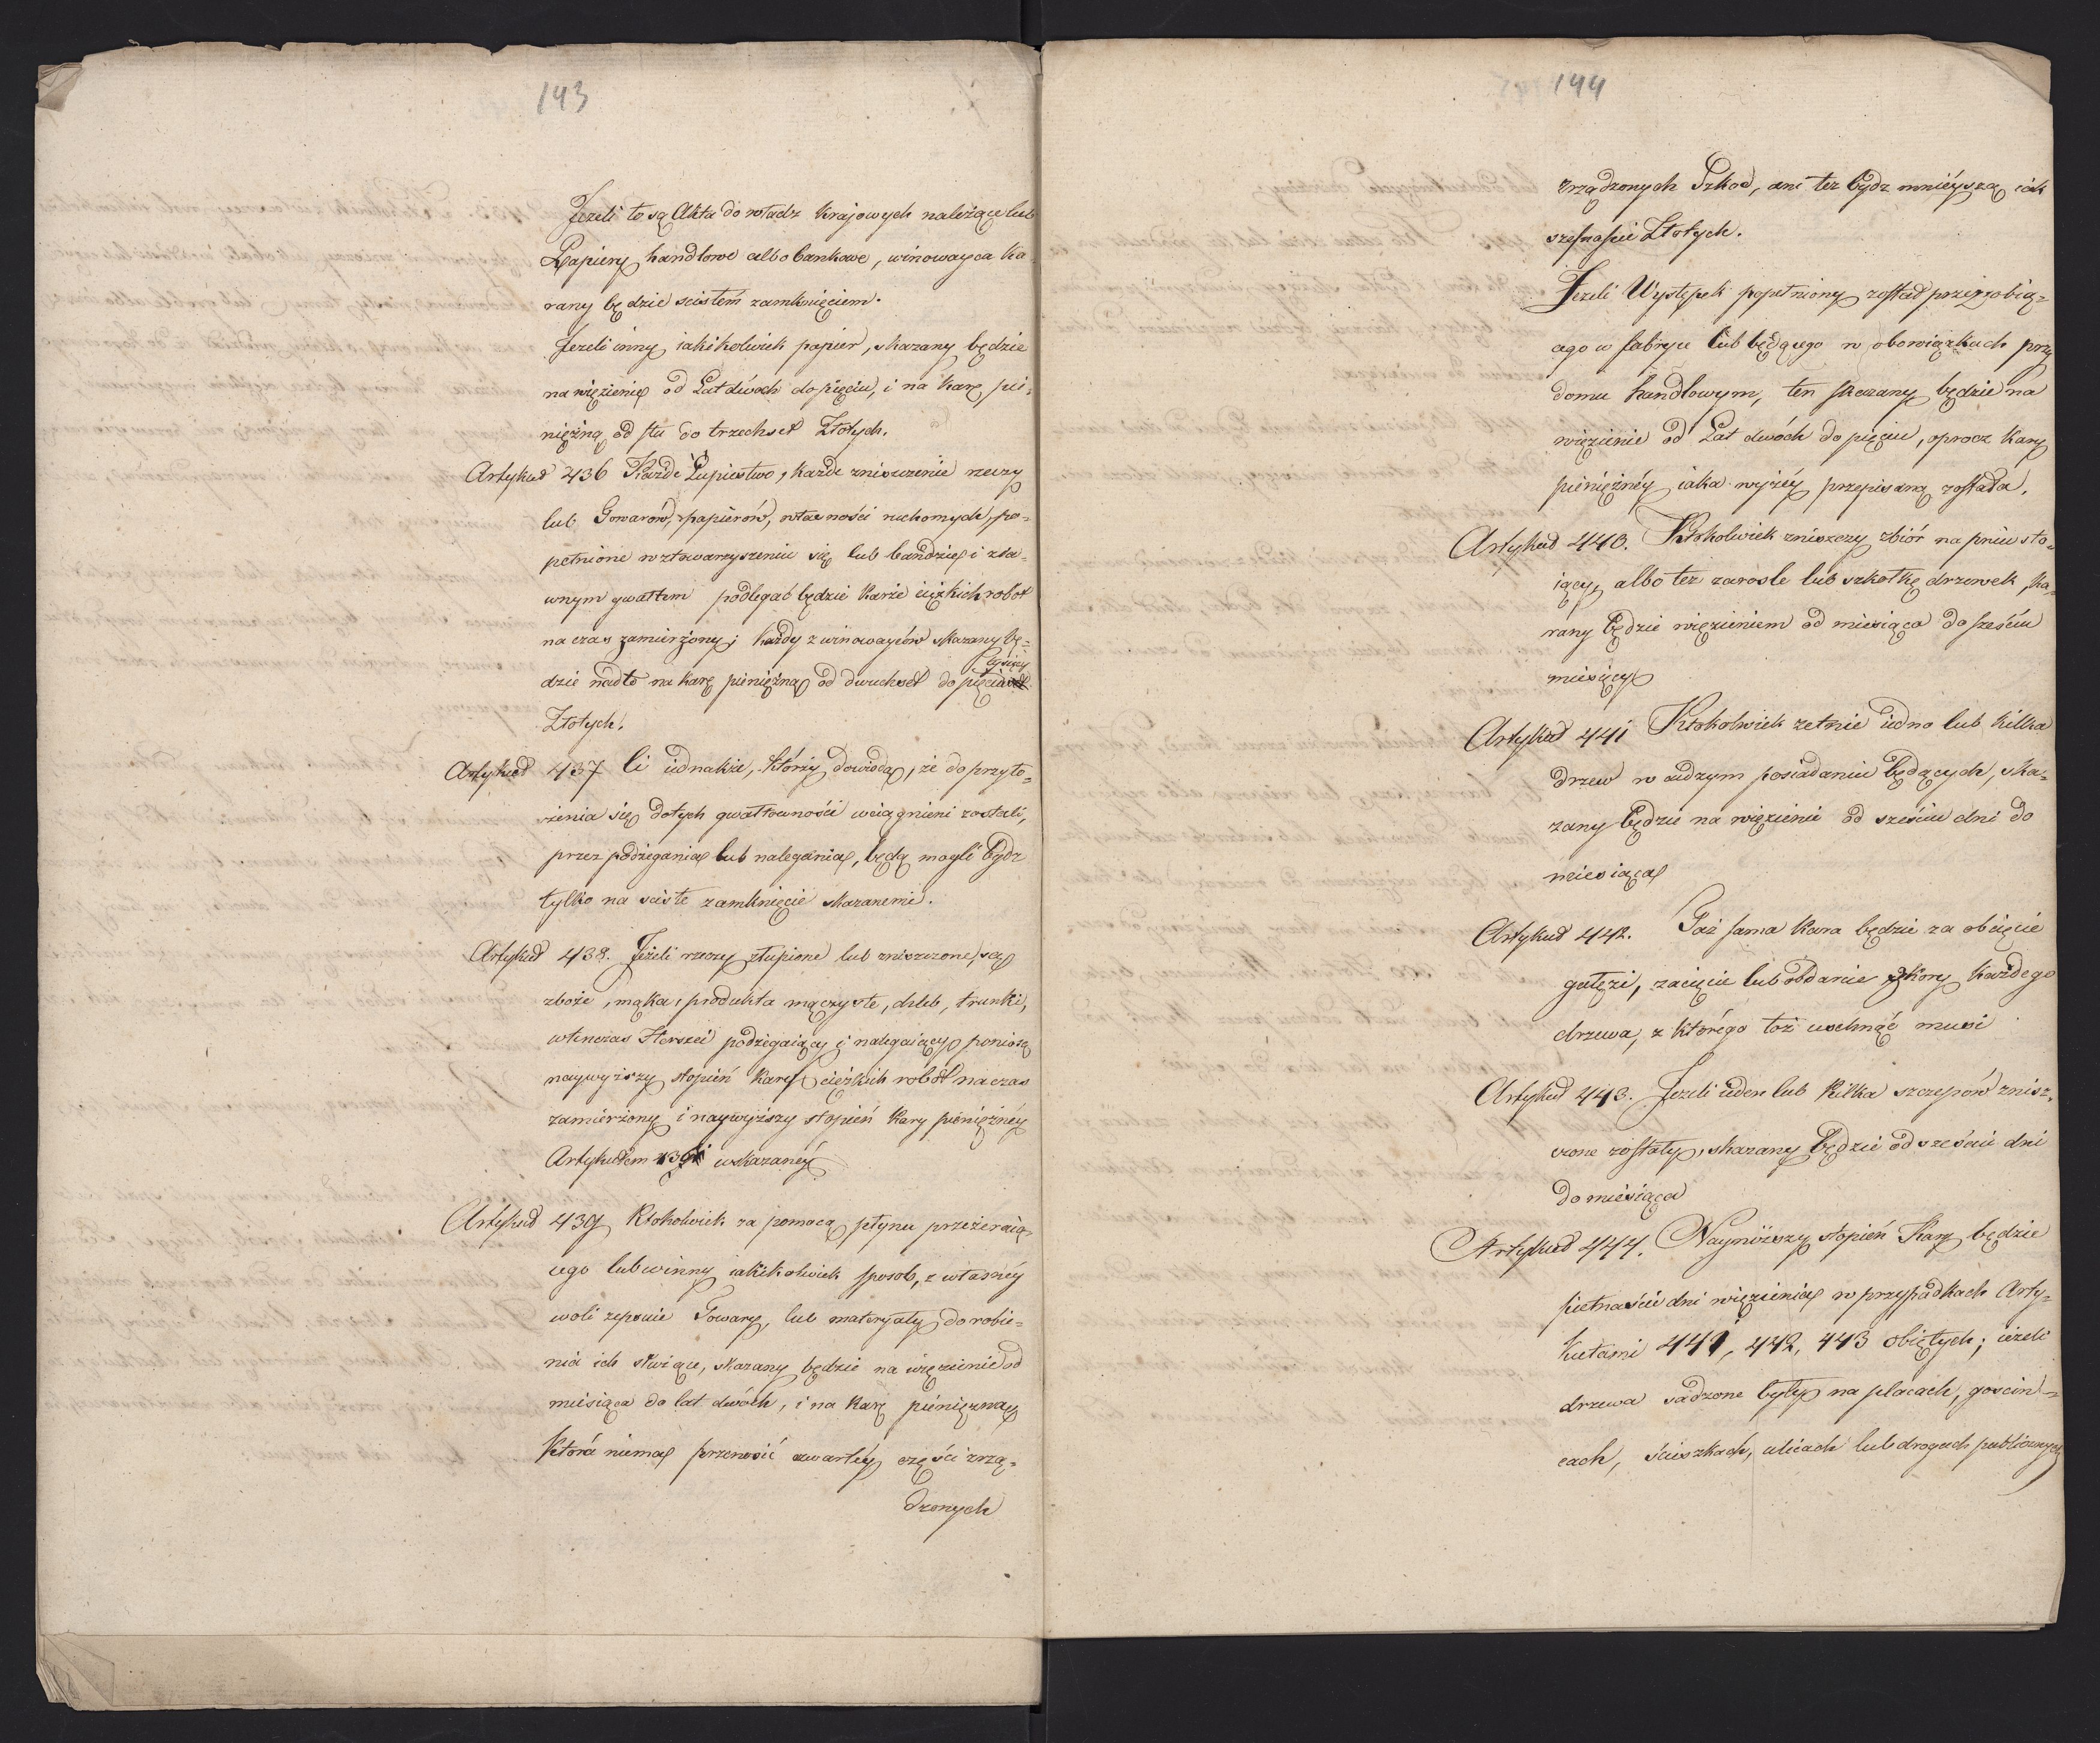 143
Jezeli to są Akta do władz Krajowych należące lub
Papiery handlowe albo bankowe, winowayca ka
rany będzie scisłém zamknięciem.
Jezeli inny iakikolwiek papier, skazany będzie
na więzienie od Lat dwóch do pięciu, i na karę pi-
niężną od stu do trzechset Złotych.
Artykuł 436 Każde Łupiestwo, każde zniszczenie rzeczy
lub Towarów, papierów, własności ruchomych, po-
pełnione w ztowarzyszeniu się lub bandzie i z ia-
wnym gwałtem podlegać będzie karze cięzkich robot
na czas zamierzony; każdy z winowayców skazany bę-
dzie nadto na karę pieniężną od dwuchset do pięciu tysięcy
Złotych.
Artykuł 437 Ci iednakże, którzy dowiodą, że do przyło-
żenia się do tych gwałtowności wciągnieni zostali,
przez podżegania lub nalegania, będą mogli bydz
tylko na scisłe zamknięcie skazanemi.
Artykuł 438. Jeżeli rzeczy złupione lub zniszczone, są
zboże, mąka, produkta mączyste, chleb, trunki,
wtenczas Herszci podżegaiący i nalegaiący poniosą
naywyższy stopień kary cięzkich robót na czas
zamierzony i naywyższy stopień kary pieniężnéy
Artykułem 436 wskazanéy
Artykuł 439 Ktokolwiek za pomocą płynu przeżeraią-
cego lub winny iakikolwiek sposob, z własnéy
woli zepsuie Towary, lub materyały do robie-
nia ich służące, skazany będzie na więzienie od
miesiąca do lat dwóch, i na karę pieniężną
która niema przenosić czwartéy części zrzą-
dzonych
144
zrządzonych Szkod, ani tez bydz mnieyszą iak
szesnaście Złotych.
Jezeli Występek popełniony został przez robią-
cego w fabryce lub będącego w obowiązkach przy
domu handlowym, ten skazany będzie na
więzienie od Lat dwóch do pięciu, oprocz kary
pieniężnéy iaka wyżéy przepisaną została.
Artykuł 440. Ktokolwiek zniszczy zbiór na pniu sto-
iący, albo tez zarosle lub szkołkę drzewek, ka-
rany będzie więzieniem od miesiąca do sześciu
miesięcy
Artykuł 441 Ktokolwiek zetnie iedno lub kilka
drzew w cudzym posiadaniu będących, ska-
zany będzie na więzienie od sześciu dni do
miesiąca
Artykuł 442. Taż sama kara będzie za obcięcie
gałęzi, zacięcie lub obdarcie kory każdego
drzewa, z którego toż uschnąć musi
Artykuł 443. Jezeli ieden lub kilka szczepów znisz-
czone zostały, skazany będzie od sześciu dni
do miesiąca
Artykuł 444. Nayniższy stopień Kary będzie
piętnaście dni więzienia w przypadkach Arty-
kułami 441, 442, 443 obiętych; ieżeli
drzewa sadzone były na placach, goscin-
cach, ścieszkach, ulicach lub drogach publicznych